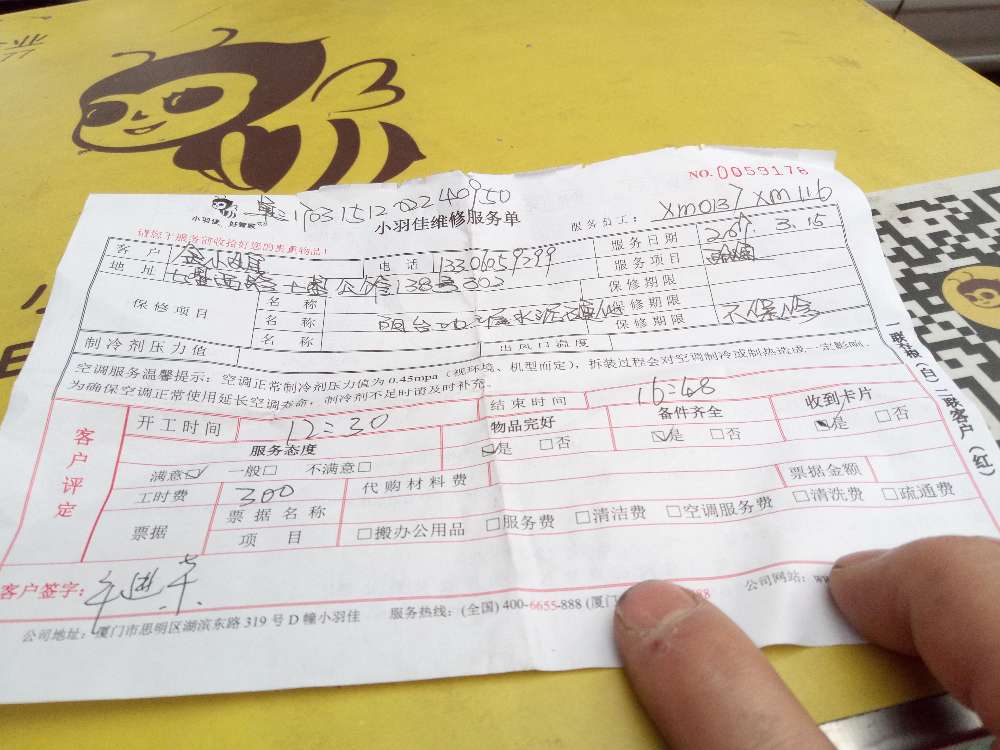 NO.0059178
170315120240950
小羽佳 好管家
小羽佳维修服务单
服务员工: xm0137 xm116
请您在服务前收拾好您的贵重物品!
客户 电话 13306059299 服务日期 2017 3.15
地址 服务项目
保修项目 名称 保修期限
名称 阳台 水泥 保修期限
名称 保修期限 不保修
制冷剂压力值 出风口温度
空调服务温馨提示: 空调正常制冷剂压力值为0.45mpa (视环境、机型而定), 拆装过程会对空调制冷或制热造成一定影响。
为确保空调正常使用延长空调寿命, 制冷剂不足时请及时补充。
客户评定
开工时间 12:30 结束时间 16:48
服务态度 物品完好 备件齐全 收到卡片
满意☑ 一般□ 不满意□ ☑是 □否 ☑是 □否 ☑是 □否
工时费 300 代购材料费 票据金额
票据 票据名称
项目 □搬办公用品 □服务费 □清洁费 □空调服务费 □清洗费 □疏通费
客户签字:
公司地址: 厦门市思明区湖滨东路319号D幢小羽佳 服务热线: (全国) 400-6655-888 (厦门 88 公司网站: ww
一联存根(白) 二联客户(红)